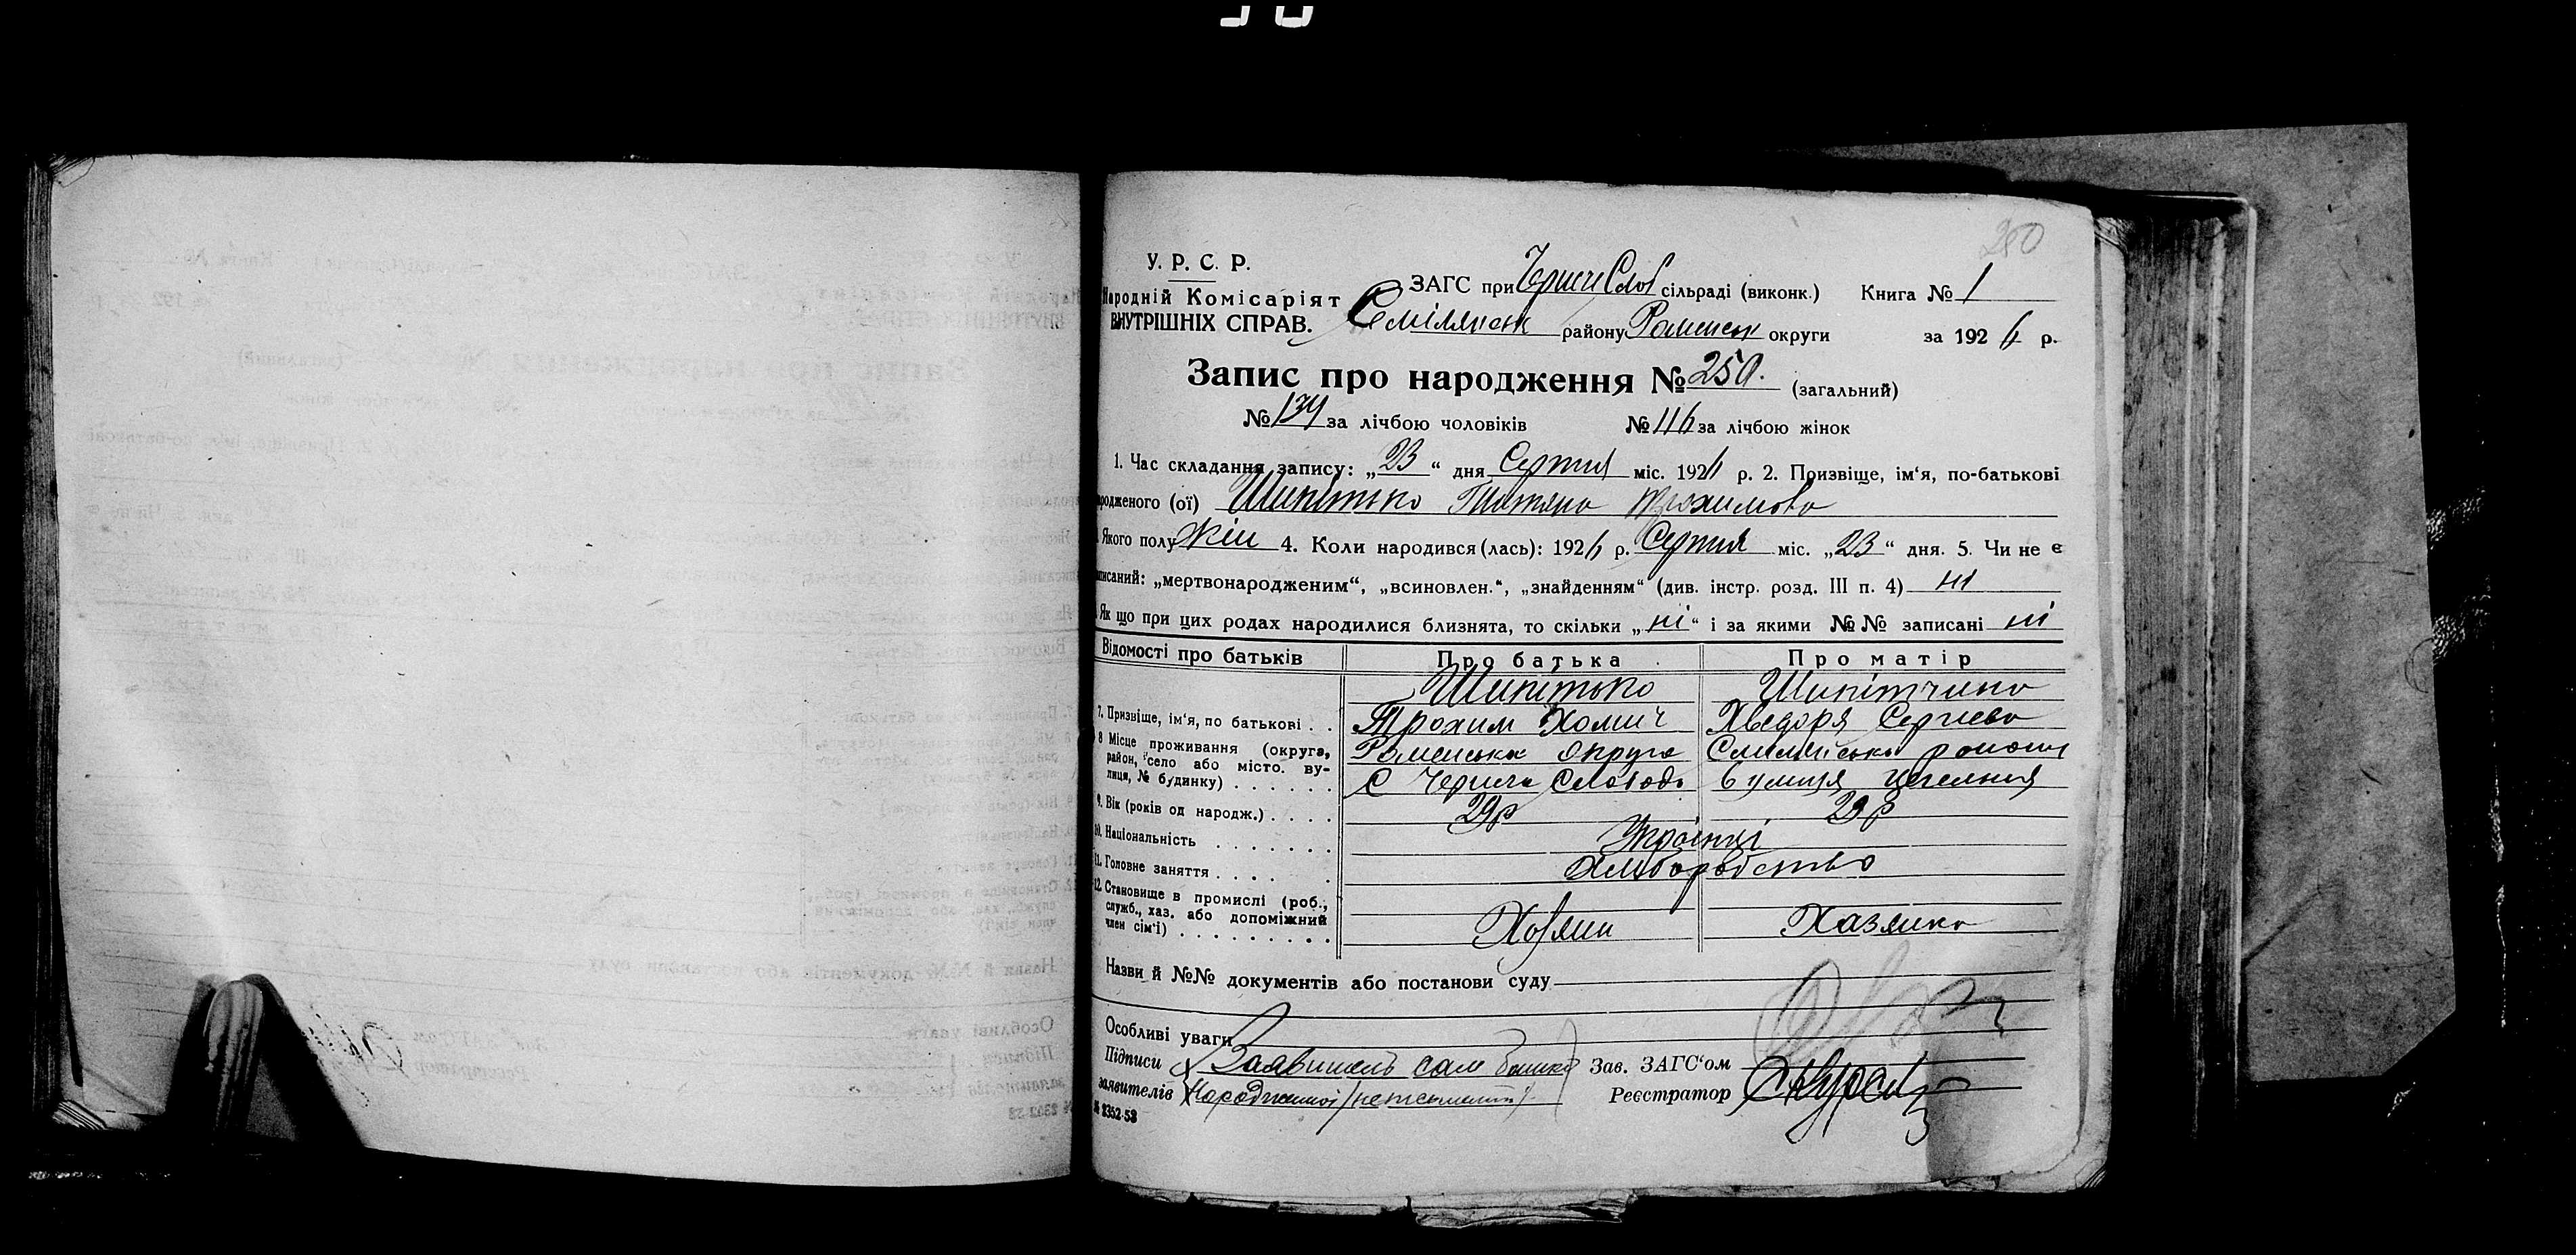 250
У. Р. С. Р.
Народній Комісаріят
ВНУТРІШНІХ СПРАВ.
ЗАГС при Чернечи Слоб сільраді (виконк.) Книга № 1
Смілянськ району Роменськ округи за 1926 р.
Запис про народження № 250. (загальний)
№ 134 за лічбою чоловіків № 116 за лічбою жінок
1. Час складання запису: „23“ дня Серпня міс. 1926 р. 2. Призвіще, ім‘я, по-батькові
народженого (ої) Шипітько Титяна Трохимова
Якого полу Жін 4. Коли народився (лась): 1926 р. Серпня міс. „23“ дня. 5. Чи не є
писаний: „мертвонародженим“, „всиновлен.“, „знайденням“ (див. інстр. розд. III п. 4) ні
Як що при цих родах народилися близнята, то скільки „ні“ і за якими №№ записані ні
Відомості про батьків Про батька Про матір
Шипітько Шипітчина
7. Призвіще, ім‘я, по батькові . . Трохим Хомич Хведоря Сергиева
8 Місце проживання (округа, район, село або місто. вулиця, № будинку) . . . . . . Роменська округа Смилянська района
С Чернеча Слобода вулиця цегельня
9. Вік (років од народж.) . . . . 29р 29р
10. Національність . . . . . . . Українці
11. Головне заняття . . . . . Хліборобство
12. Становище в промислі (роб., служб., хаз. або допоміжний член сім‘ї) . . . . . . . . . Хозяин Хазяика
Назви й №№ документів або постанови суду
Особливі уваги
Підписи Заявитель сам батько Зав. ЗАГС‘ом
заявителів Народженної Реєстратор
№ 2352-53